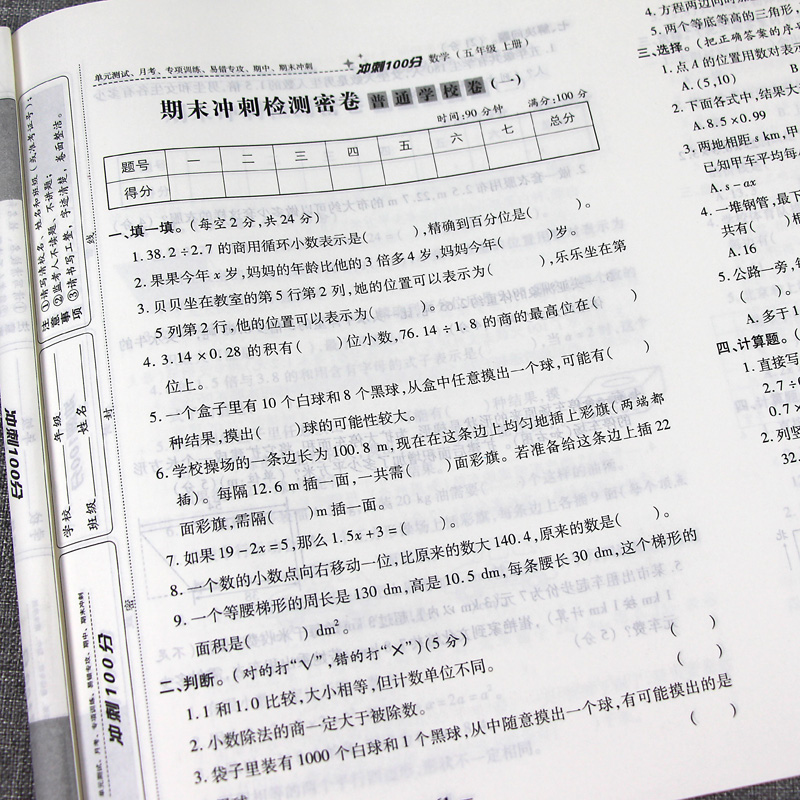 单元测试、月考、专项训练、易错专攻、期中、期末冲刺
冲刺100分 数学(五年级 上册)
期末冲刺检测密卷 普通学校卷(一)
时间:90分钟 满分:100分
题号 一 二 三 四 五 六 七 总分
得分
一、填一填。(每空2分,共24分)
1. 38.2÷2.7的商用循环小数表示是( ),精确到百分位是( )。
2. 果果今年x岁,妈妈的年龄比他的3倍多4岁,妈妈今年( )岁。
3. 贝贝坐在教室的第5行第2列,她的位置可以表示为( ),乐乐坐在第
5列第2行,他的位置可以表示为( )。
4. 3.14×0.28的积有( )位小数,76.14÷1.8的商的最高位在( )
位上。
5. 一个盒子里有10个白球和8个黑球,从盒中任意摸出一个球,可能有( )
种结果,摸出( )球的可能性较大。
6. 学校操场的一条边长为100.8 m,现在在这条边上均匀地插上彩旗(两端都
插)。每隔12.6 m插一面,一共需( )面彩旗。若准备给这条边上插22
面彩旗,需隔( )m插一面。
7. 如果19-2x=5,那么1.5x+3=( )。
8. 一个数的小数点向右移动一位,比原来的数大140.4,原来的数是( )。
9. 一个等腰梯形的周长是130 dm,高是10.5 dm,每条腰长30 dm,这个梯形的
面积是( )dm²。
二、判断。(对的打“√”,错的打“×”)(5分)
1. 1和1.0比较,大小相等,但计数单位不同。 ( )
2. 小数除法的商一定大于被除数。 ( )
3. 袋子里装有1000个白球和1个黑球,从中随意摸出一个球,有可能摸出的是
( )
4. 方程两边同时
5. 两个等底等高的三角形,
三、选择。(把正确答案的序
1. 点A的位置用数对表示
A. (5,10) B
2. 下面各式中,结果大
A. 8.5×0.99
3. 两地相距s km,甲
已知甲车平均每
A. s-ax
4. 一堆钢管,最下
共有( )根
A. 16
5. 公路一旁,每
( )。
A. 多于1
四、计算题。(
1. 直接写
2.7÷
0.7×
2. 列竖
32.
注意事项
①请写清校名、姓名和班级(或准考证号);
②监考人不读题、不讲题;
③请书写工整、字迹清楚、卷面整洁。
学校 年级
班级 姓名
密 封 线
冲刺100分
单元测试、月考、专项训练、易错专攻、期中、期末冲刺
冲刺100分